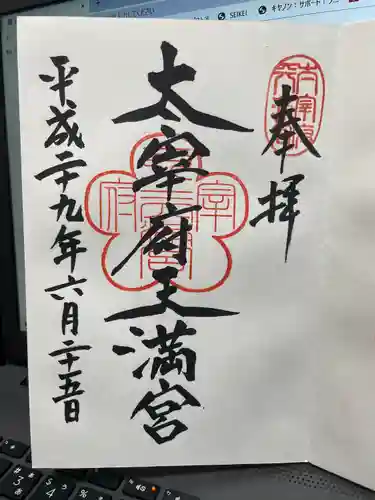 SEIKEI
キヤノン：サポート
奉拝
太宰府天満宮
平成二十九年六月二十五日